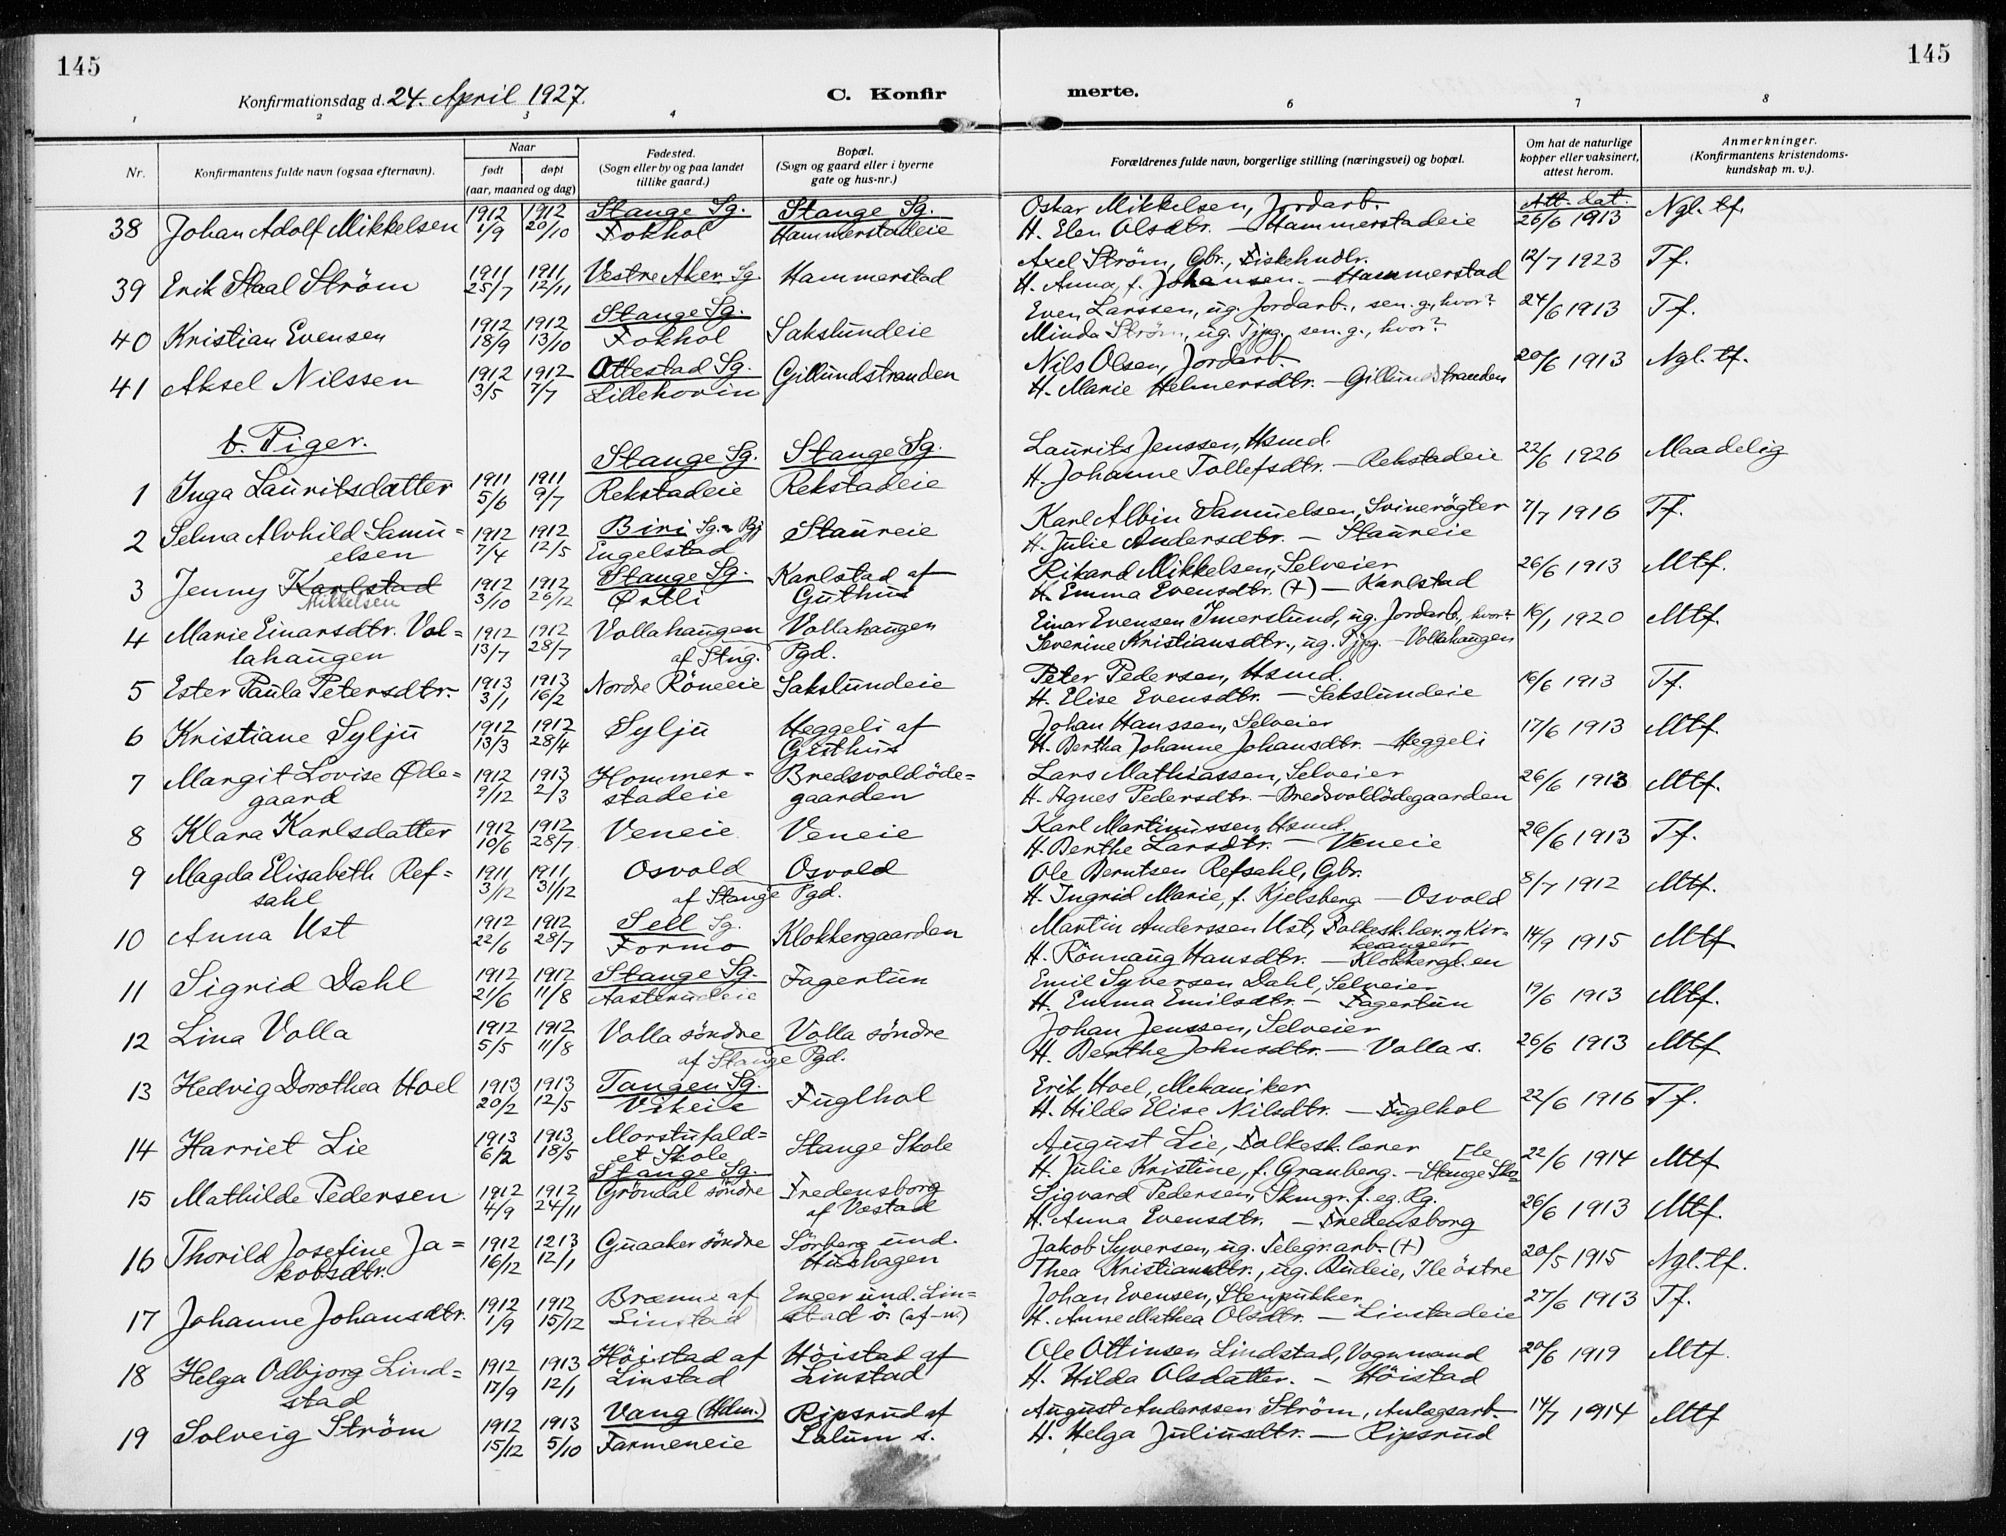 145
145
Konfirmationsdag d. 24. April 1927.
C. Konfir
merte.
1 2 3 4 6 7 8
Nr.
Konfirmantens fulde navn (ogsaa efternavn).
Naar
født
døpt
(aar, maaned og dag)
Fødested.
(Sogn eller by og paa landet
tillike gaard.)
Bopæl.
(Sogn og gaard eller i byerne
gate og hus-nr.)
Forældrenes fulde navn, borgerlige stilling (næringsvei) og bopæl.
Om hat de naturlige
kopper eller vaksinert,
attest herom.
Anmerkninger.
(Konfirmantens kristendoms-
kundskap m. v.).
38 Johan Adolf Mikkelsen 1912 1/9 1912 20/10 Stange Sg. Fokhol Stange Sg. Hammerstadeie Oskar Mikkelsen, Jordarb. Att. dat. 26/6 1913 Ngl. tf.
H. Elen Olsdtr. — Hammerstadeie
39 Erik Staal Ström 1911 25/7 1911 12/11 Vestre Aker Sg. Hammerstad Axel Ström, Gbr., Fiskehndlr. 12/7 1923 Tf.
H. Anna, f. Johansen. — Hammerstad
40 Kristian Evensen 1912 18/9 1912 13/10 Stange Sg. Fokhol Sakslundeie Even Larssen, ug. Jordarb., sen. g., hvor? 24/6 1913 Tf.
Minda Ström, ug. Tjpg., sen. g., hvor?
41 Aksel Nilssen 1912 3/5 1912 7/7 Ottestad Sg. Lillehovin Gillundstranden Nils Olsen, Jordarb. 20/6 1913 Ngl. tf.
H. Marie Helmersdtr. — Gillundstranden
b. Piger.
1 Inga Lauritsdatter 1911 5/6 1911 9/7 Stange Sg. Rekstadeie Stange Sg. Rekstadeie Laurits Jenssen, Hsmd. 22/6 1926 Maadelig
H. Johanne Tollefsdtr. — Rekstadeie
2 Selma Alvhild Samu= 1912 7/4 1912 12/5 Biri Sg. Pgj Staureie Karl Albin Samuelsen, Svinerögter 7/7 1916 Tf.
elsen Engelstad H. Julie Andersdtr. — Staureie
3 Jenny Karlstad 1912 3/10 1912 26/12 Stange Sg. Karlstad af Rikard Mikkelsen, Selveier 26/6 1913 Mtf.
Mikkelsen Ørtli Guthus H. Emma Evensdtr. (+) — Karlstad
4 Marie Einarsdtr. Vol= 1912 13/7 1912 28/7 Vollahaugen Vollahaugen Einar Evensen Imerslund, ug. Jordarb., hvor? 16/1 1920 Mtf.
lahaugen af Stng. Pgd. Severine Kristiansdtr., ug. Tjpg. — Vollahaugen
5 Ester Paula Petersdtr. 1913 3/1 1913 16/2 Nordre Röneeie Sakslundeie Peter Pedersen, Hsmd. 16/6 1913 Tf.
H. Elise Evensdtr. — Sakslundeie
6 Kristiane Sylju 1912 13/3 1912 28/4 Sylju Heggeli af Johan Hanssen, Selveier 17/6 1913 Mtf.
Guthus H. Bertha Johanne Johansdtr. — Heggeli
7 Margit Lovise Øde= 1912 9/12 1913 2/3 Hommer- Bredsvoldöde= Lars Mathiassen, Selveier 26/6 1913 Mtf.
gaard stadeie gaarden H. Agnes Pedersdtr. — Bredsvoldödegaarden
8 Klara Karlsdatter 1912 10/6 1912 28/7 Veneie Veneie Karl Martinussen, Hsmd. 26/6 1913 Tf.
H. Berthe Larsdtr. — Veneie
9 Magda Elisabeth Ref= 1911 3/12 1911 31/12 Osvold Osvold Ole Berntsen Refsahl, Gbr. 8/7 1912 Mtf.
sahl af Stange Pgd. H. Ingrid Marie, f. Kjelsberg — Osvold
10 Anna Ust 1912 22/6 1912 28/7 Sell Sg. Formo Klokkergaarden Martin Anderssen Ust, Folkesk.lær. og Kir=
kesanger 14/9 1915 Mtf
H. Rönnaug Hansdtr. — Klokkergd.en
11 Sigrid Dahl 1912 21/6 1912 11/8 Stange Sg. Aasterudeie Fagertun Emil Syversen Dahl, Selveier 19/6 1913 Mtf.
H. Emma Emilsdtr. — Fagertun
12 Lina Volla 1912 5/5 1912 11/8 Volla söndre Volla söndre Johan Jenssen, Selveier 26/6 1913 Mtf
af Stange Pgd. H. Berthe Johnsdtr. — Volla s.
13 Hedvig Dorothea Hoel 1913 20/2 1913 12/5 Tangen Sg. Vikeie Fuglhol Erik Hoel, Mekaniker 22/6 1916 Tf.
H. Hilda Elise Nilsdtr. — Fuglhol
14 Harriet Lie 1913 6/2 1913 18/5 Morstufald= Stange Skole August Lie, Folkesk.lærer 22/6 1914 Mtf
et Skole H. Julie Kristine, f. Granberg. — Stange Sko=
le
15 Mathilde Pedersen 1912 4/9 1912 24/11 Stange Sg. Gröndal söndre Fredensborg Sigvard Pedersen, Skmgr. f. eg. Rg. 26/6 1913 Mtf.
af Væstad H. Anna Evensdtr. — Fredensborg
16 Thorild Josefine Ja= 1912 16/12 1213 12/1 Guaaker söndre Sörberg und. Jakob Syversen, ug. Telegr.arb. (+) 20/5 1915 Ngl. tf.
kobsdtr. Hushagen Thea Kristiansdtr., ug. Budeie, Ile östre
17 Johanne Johansdtr. 1912 1/9 1912 15/12 Brænne af Enger und. Lin= Johan Evensen, Stenpukker 27/6 1913 Tf.
Linstad stad ö. H. Anne Mathea Olsdtr. — Linstadeie
18 Helga Odbjorg Lind= 1912 17/9 1913 12/1 Höistad af Höistad af Ole Ottinsen Lindstad, Vognmand 20/6 1919 Mtf.
stad Linstad Linstad H. Hilda Olsdatter. — Höistad
19 Solveig Ström 1912 15/12 1913 5/10 Vang (Hdm.) Ripsrud af August Anderssen Ström, Anlegsarb. 14/7 1914 Mtf
Farmeneie Lalum s. H. Helga Juliusdtr. — Ripsrud